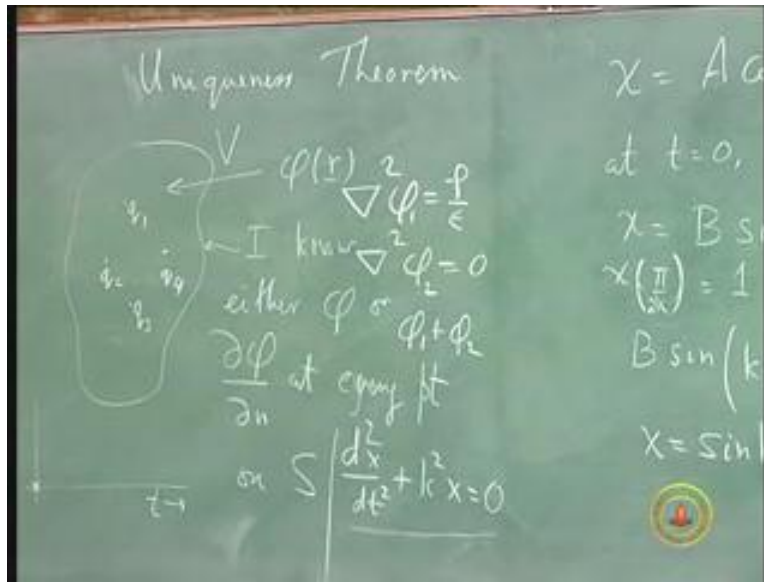 Uniqueness Theorem
V
φ(r)
∇²φ₁ = -ρ/ε
q₁
I know
∇²φ₂ = 0
q₂
q₄
q₃
either φ or
φ₁+φ₂
∂φ/∂n at every pt
on S
d²x/dt² + k²x = 0
t→
x = A
at t=0,
x = B
x(π/2k) = 1
B sin(k
x = sin